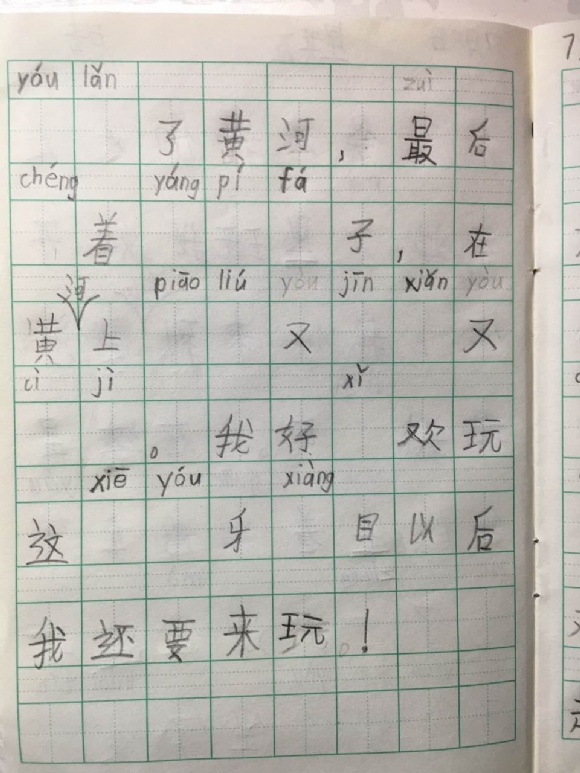 yóu lǎn zuì
了黄河，最后
chéng yáng pí fá
着子，在
piāo liú yóu jīn xiǎn yòu
黄河上又又
cì jì xǐ
。我好欢玩
xiē yóu xiàng
这牙目以后
我还要来玩！